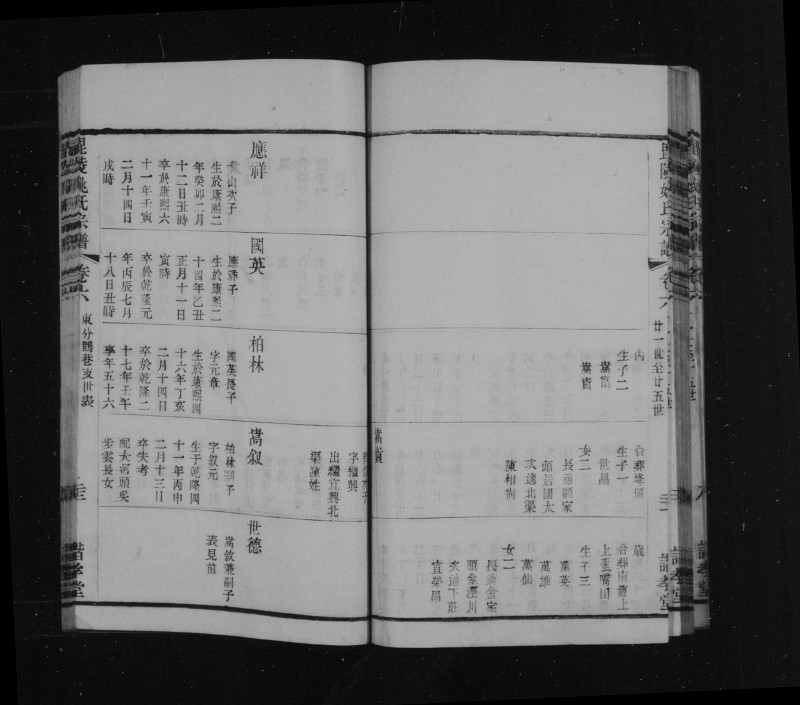 廿一世至廿五世
內
生子二
嵩貴
合葬塋堰
生子一
世昌
女二
長適顧家
頭莒國太
次適北渠
陳相尚
歲
合葬南濟上
上歪嘴田
生子三
萬英
萬雄
萬仙
女二
長適金家
頭金涇川
次適下莊
宜榮昌
諧孝堂
嵩貴
字繼興
出繼宜興北
渠陳姓
應祥
山次子
生於康熙二
年癸卯二月
十二日丑時
卒於康熙六
十一年壬寅
二月十四日
戌時
國英
應祥子
生於康熙二
十四年乙丑
正月十一日
寅時
卒於乾隆元
年丙辰七月
十八日丑時
柏林
國英長子
字元章
生於康熙四
十六年丁亥
二月十四日
卒於乾隆二
十七年壬午
享年五十六
嵩叙
柏林嗣子
字叙元
生于乾隆四
十一年丙申
二月十三日
卒失考
配大河頭吳
步雲長女
世德
嵩敘兼嗣子
表見前
毘陵姚氏宗譜
卷六
東分鸛巷支世表
諧孝堂